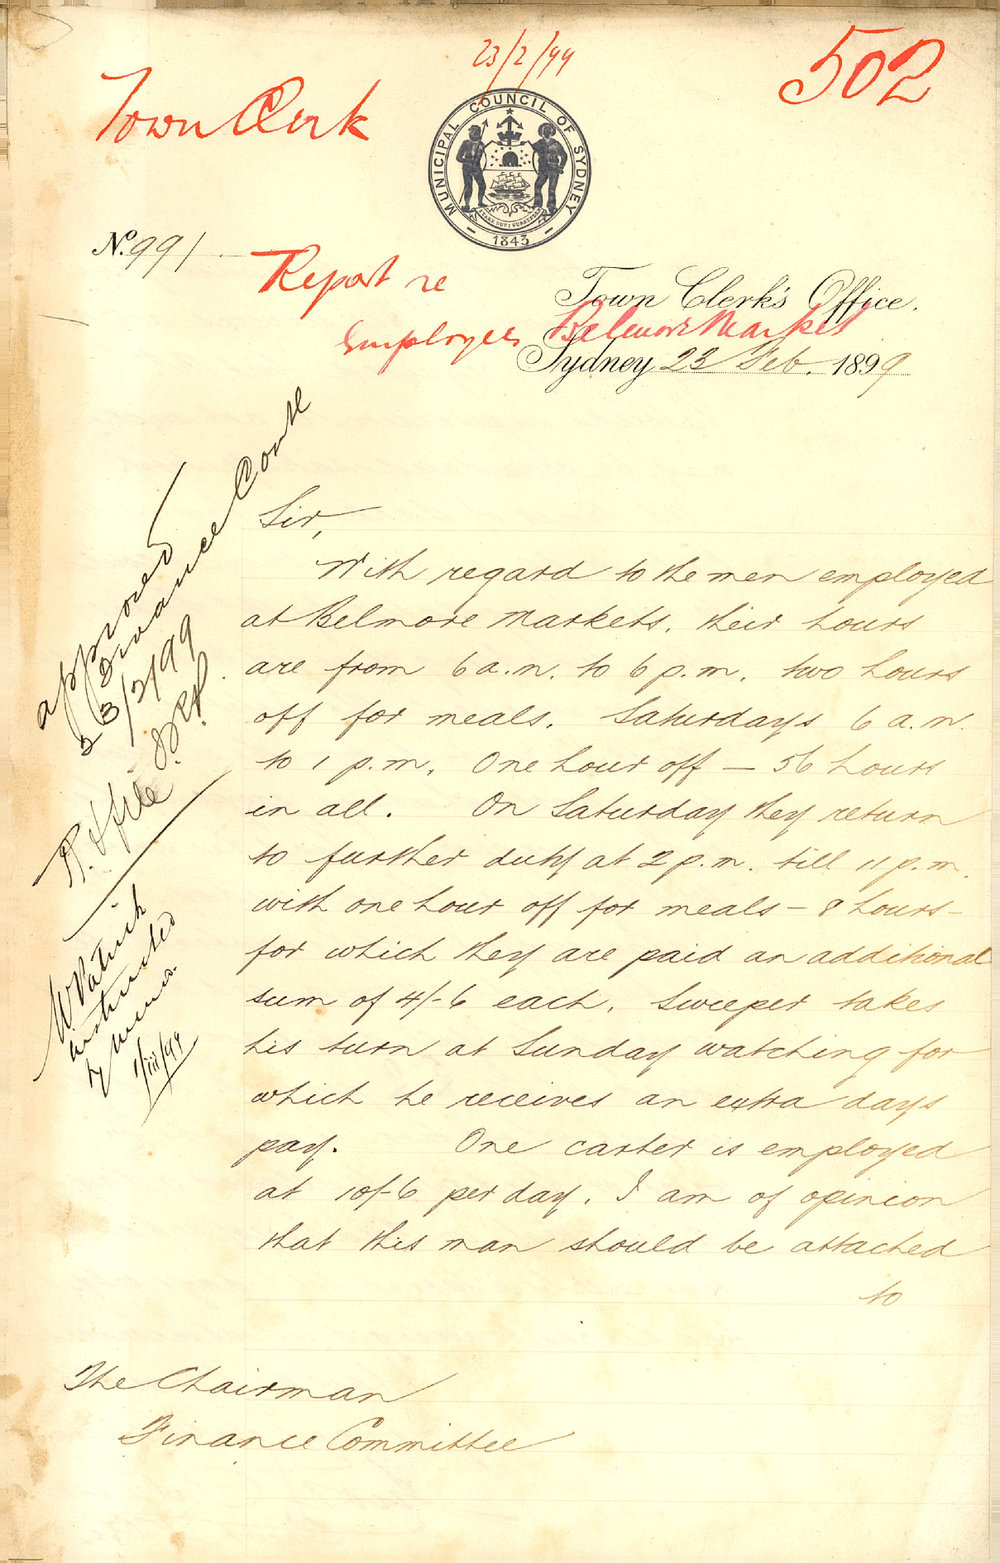 23/2/99
502
Town Clerk
MUNICIPAL COUNCIL OF SYDNEY
1843
No. 991
Report re
Employees Belmore Market
Town Clerk's Office.
Sydney 23 Feb. 1899
approved
Finance Comtt
23/2/99
R. & file
W Patrick
instructed
by
1/iii/99
Sir,
With regard to the men employed
at Belmore Markets, their hours
are from 6 a.m. to 6 p.m. two hours
off for meals. Saturdays 6 a.m.
to 1 p.m. One hour off — 56 hours
in all. On Saturday they return
to further duty at 2 p.m. till 11 p.m.
with one hour off for meals — 8 hours —
for which they are paid an additional
sum of 4/-6 each. Sweeper takes
his turn at Sunday watching for
which he receives an extra days
pay. One carter is employed
at 10/-6 per day. I am of opinion
that this man should be attached
to
The Chairman
Finance Committee